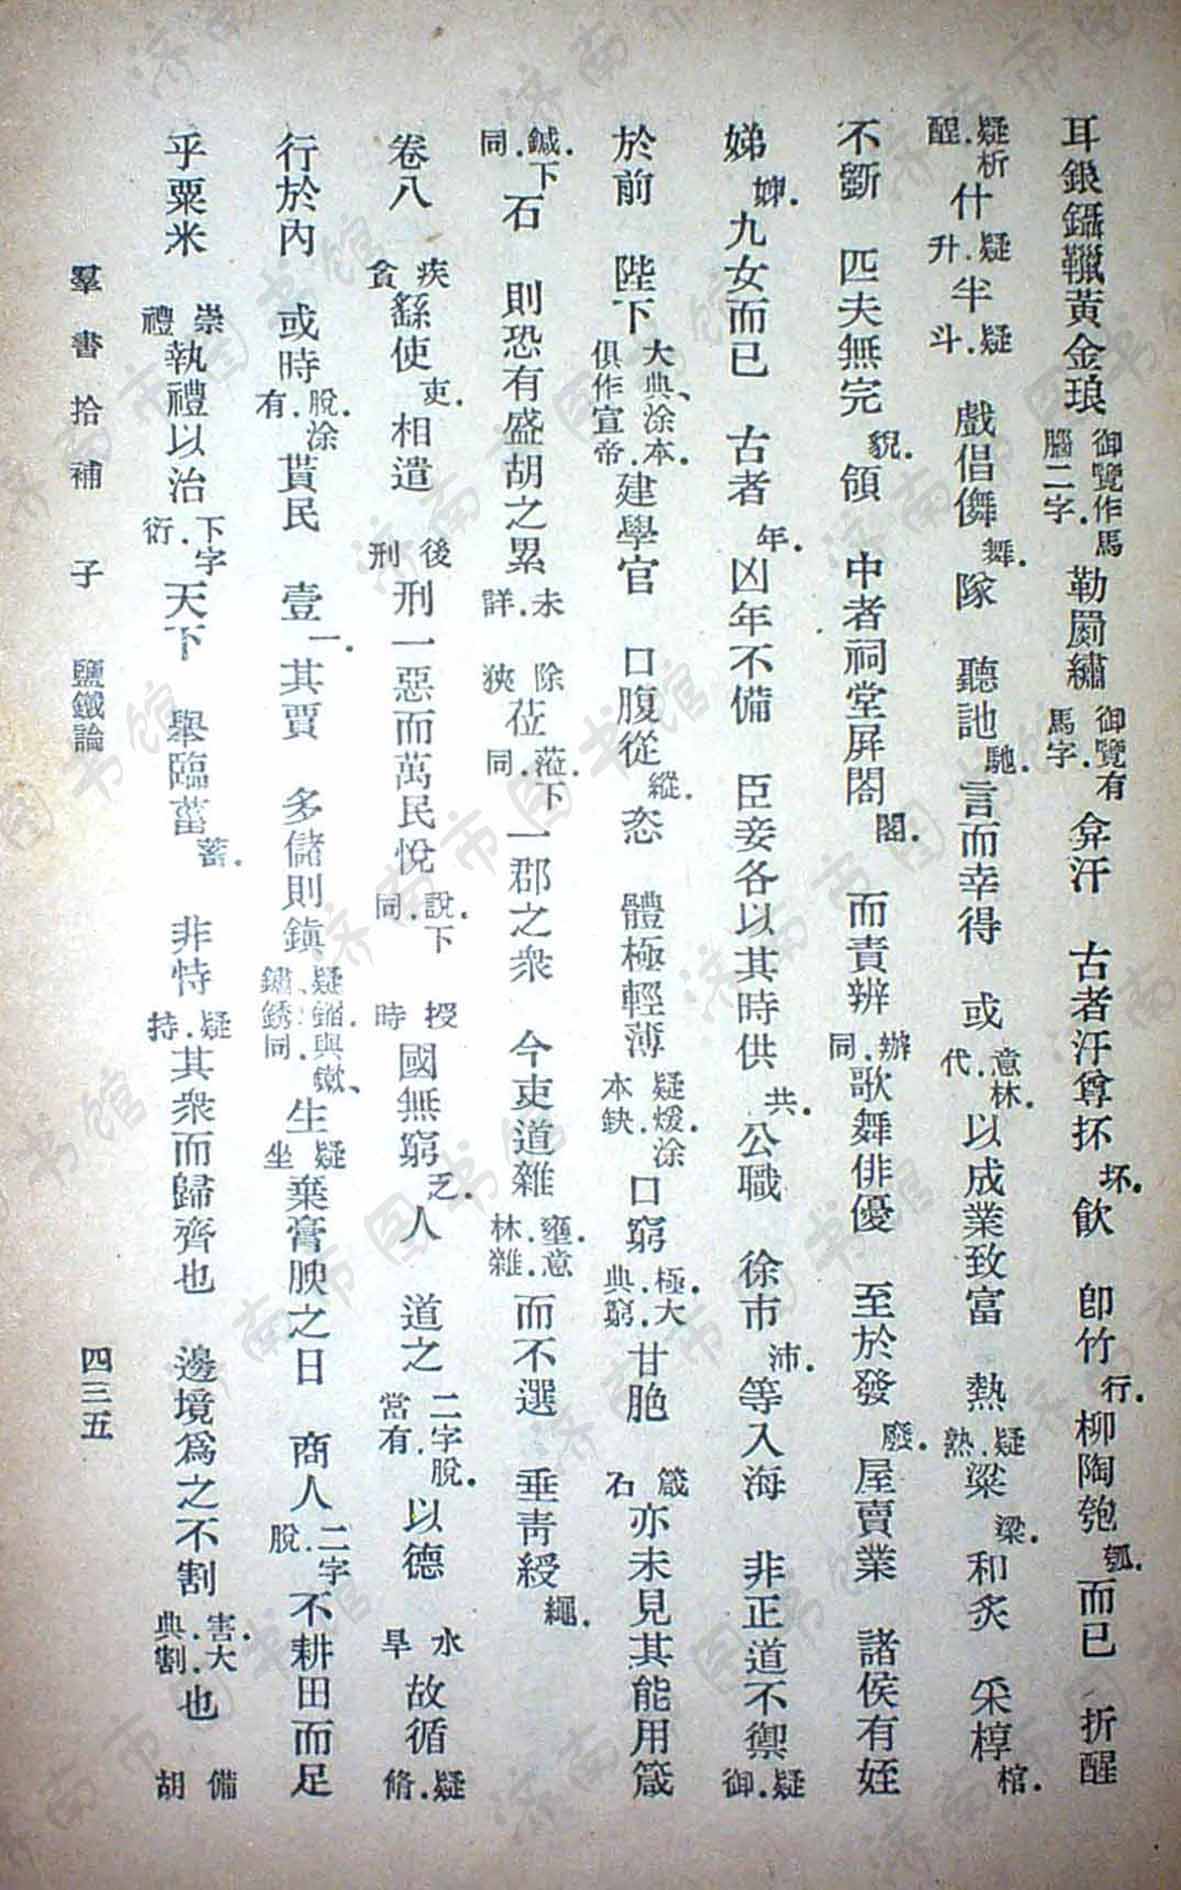 耳銀鑷鞿黃金琅御覽作馬腦二字.勒罽繡御覽有馬字.弇汗　古者汙尊抔坏.飲　卽竹行.柳陶匏瓠.而已　折酲
疑析酲.什疑升.半疑斗.　戲倡儛舞.隊　聽訑馳.言而幸得　或意林.代.以成業致富　熱疑熟.粱梁.和炙　采椁棺.
不斷　匹夫無完貌.領　中者祠堂屏閤閣.　而責辨辦.同.歌舞俳優　至於發廢.屋賣業　諸侯有姪
娣娣.九女而已　古者年.凶年不備　臣妾各以其時供共.公職　徐市沛.等入海　非正道不禦疑御.
於前　陛下大典、涂本.俱作宣帝.建學官　口腹從縱.恣　體極輕薄疑煖.涂本缺.口窮極.大典.窮.甘脆　箴石　亦未見其能用箴
鍼.下同.石　則恐有盛胡之累未詳.　除狹　莅蒞.下同.一郡之衆　今吏道雜壅.意林.雜.而不選　垂靑綬繩.
卷八　疾貪　繇使吏.相遣　後刑　刑一惡而萬民悅說.下同.　授時　國無窮乏.人　道之二字脫.當有.以德　水旱　故循疑脩.
行於內　或時脫.涂有.貰民　壹一.其賈　多儲則鎭疑鏥.與鏉、鏽、銹同.生疑坐棄膏腴之日　商人二字脫.不耕田而足
乎粟米　崇禮　執禮以治下字衍.天下　擧臨菑蓄.　非恃疑持.其衆而歸齊也　邊境爲之不割害.大典.割.也　備胡
羣書拾補　子　鹽鐵論　四三五
济南市图书馆